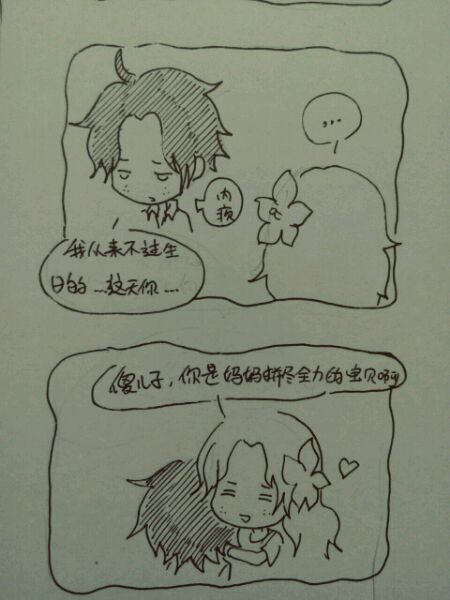 ...
内疚
我从来不过生
日的...这天你...
傻儿子,你是妈妈拼尽全力的宝贝啊